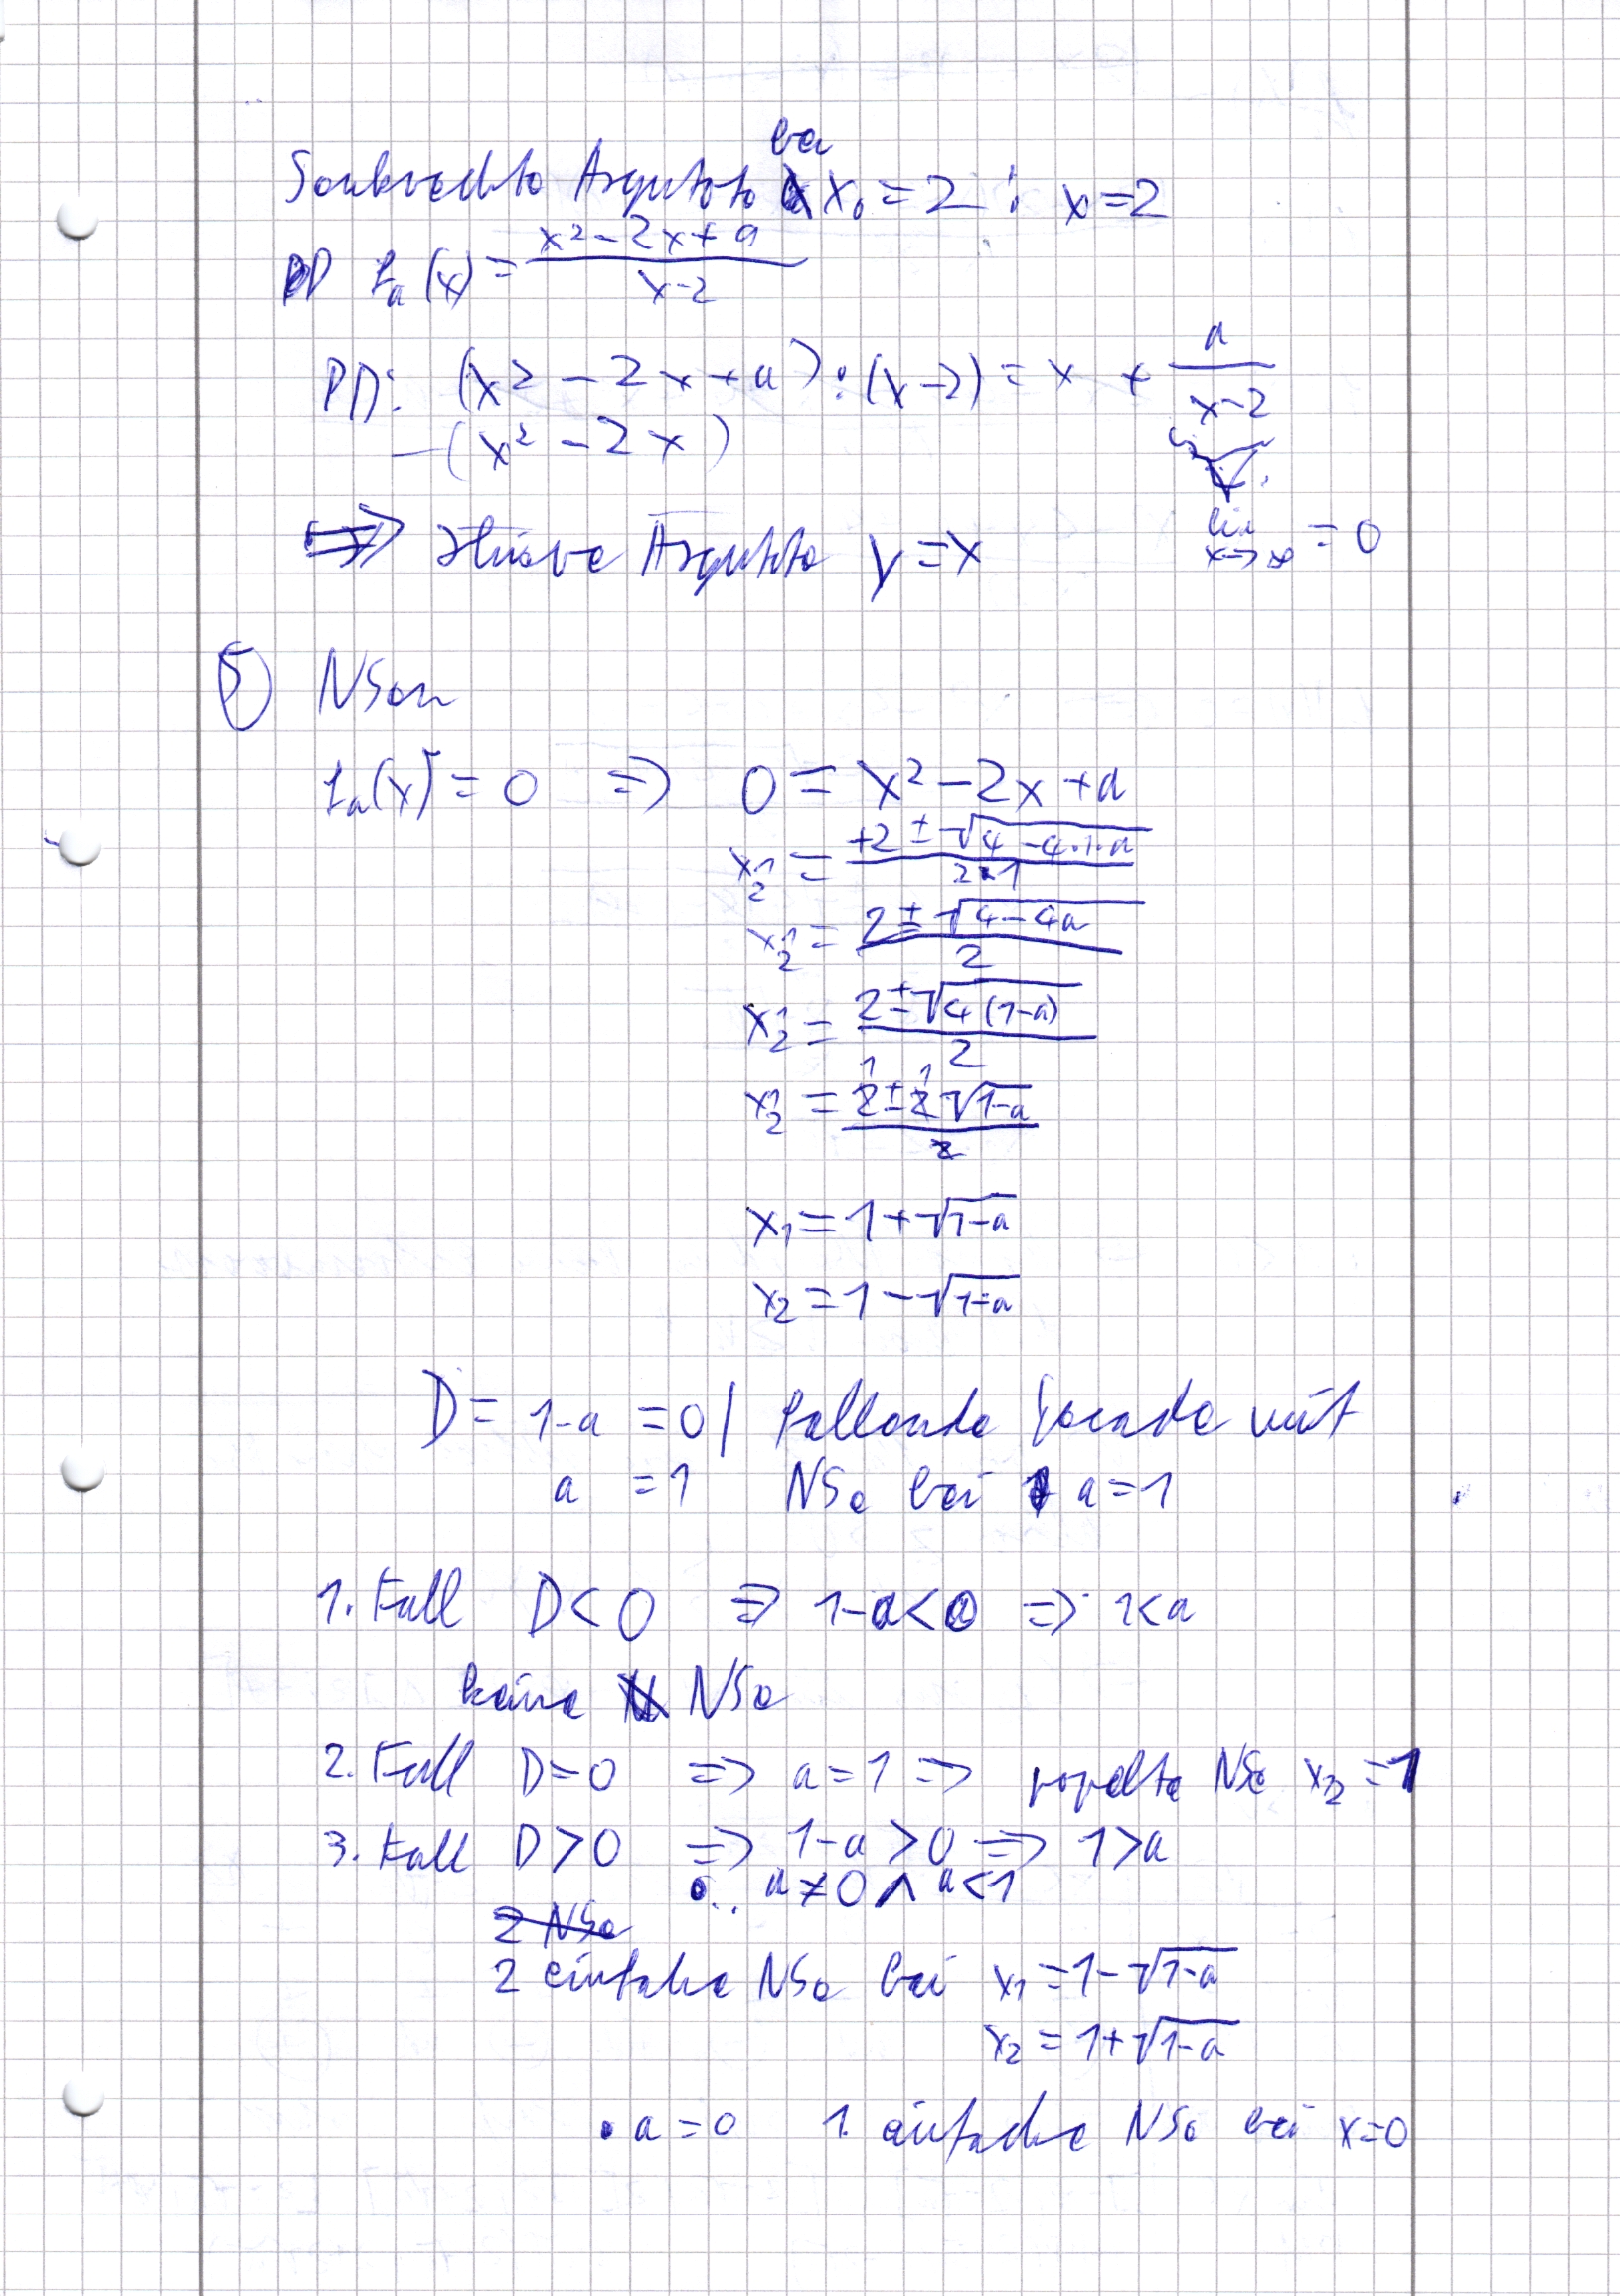 Senkrechte Asymptote bei x₀ = 2 : x = 2
fₐ(x) = (x² - 2x + a)/(x - 2)
PD: (x² - 2x + a) : (x - 2) = x + a/(x - 2)
-(x² - 2x)
lim x→∞ = 0
=> schiefe Asymptote y = x
5 NSen
fₐ(x) = 0 => 0 = x² - 2x + a
x₁,₂ = (+2 ± √(4 - 4·1·a))/(2·1)
x₁,₂ = (2 ± √(4 - 4a))/2
x₁,₂ = (2 ± √(4(1-a)))/2
x₁,₂ = (2 ± 2√(1-a))/2
x₁ = 1 + √(1-a)
x₂ = 1 - √(1-a)
D = 1-a = 0 | fallende Gerade mit
a = 1 NSe bei a = 1
1. Fall D < 0 => 1-a < 0 => 1 < a
keine NSe
2. Fall D = 0 => a = 1 => NSe x₁,₂ = 1
3. Fall D > 0 => 1-a > 0 => 1 > a
• a ≠ 0 ∧ a < 1
2 NSe
2 einfache NSe bei x₁ = 1 - √(1-a)
x₂ = 1 + √(1-a)
• a = 0 1 einfache NSe bei x = 0